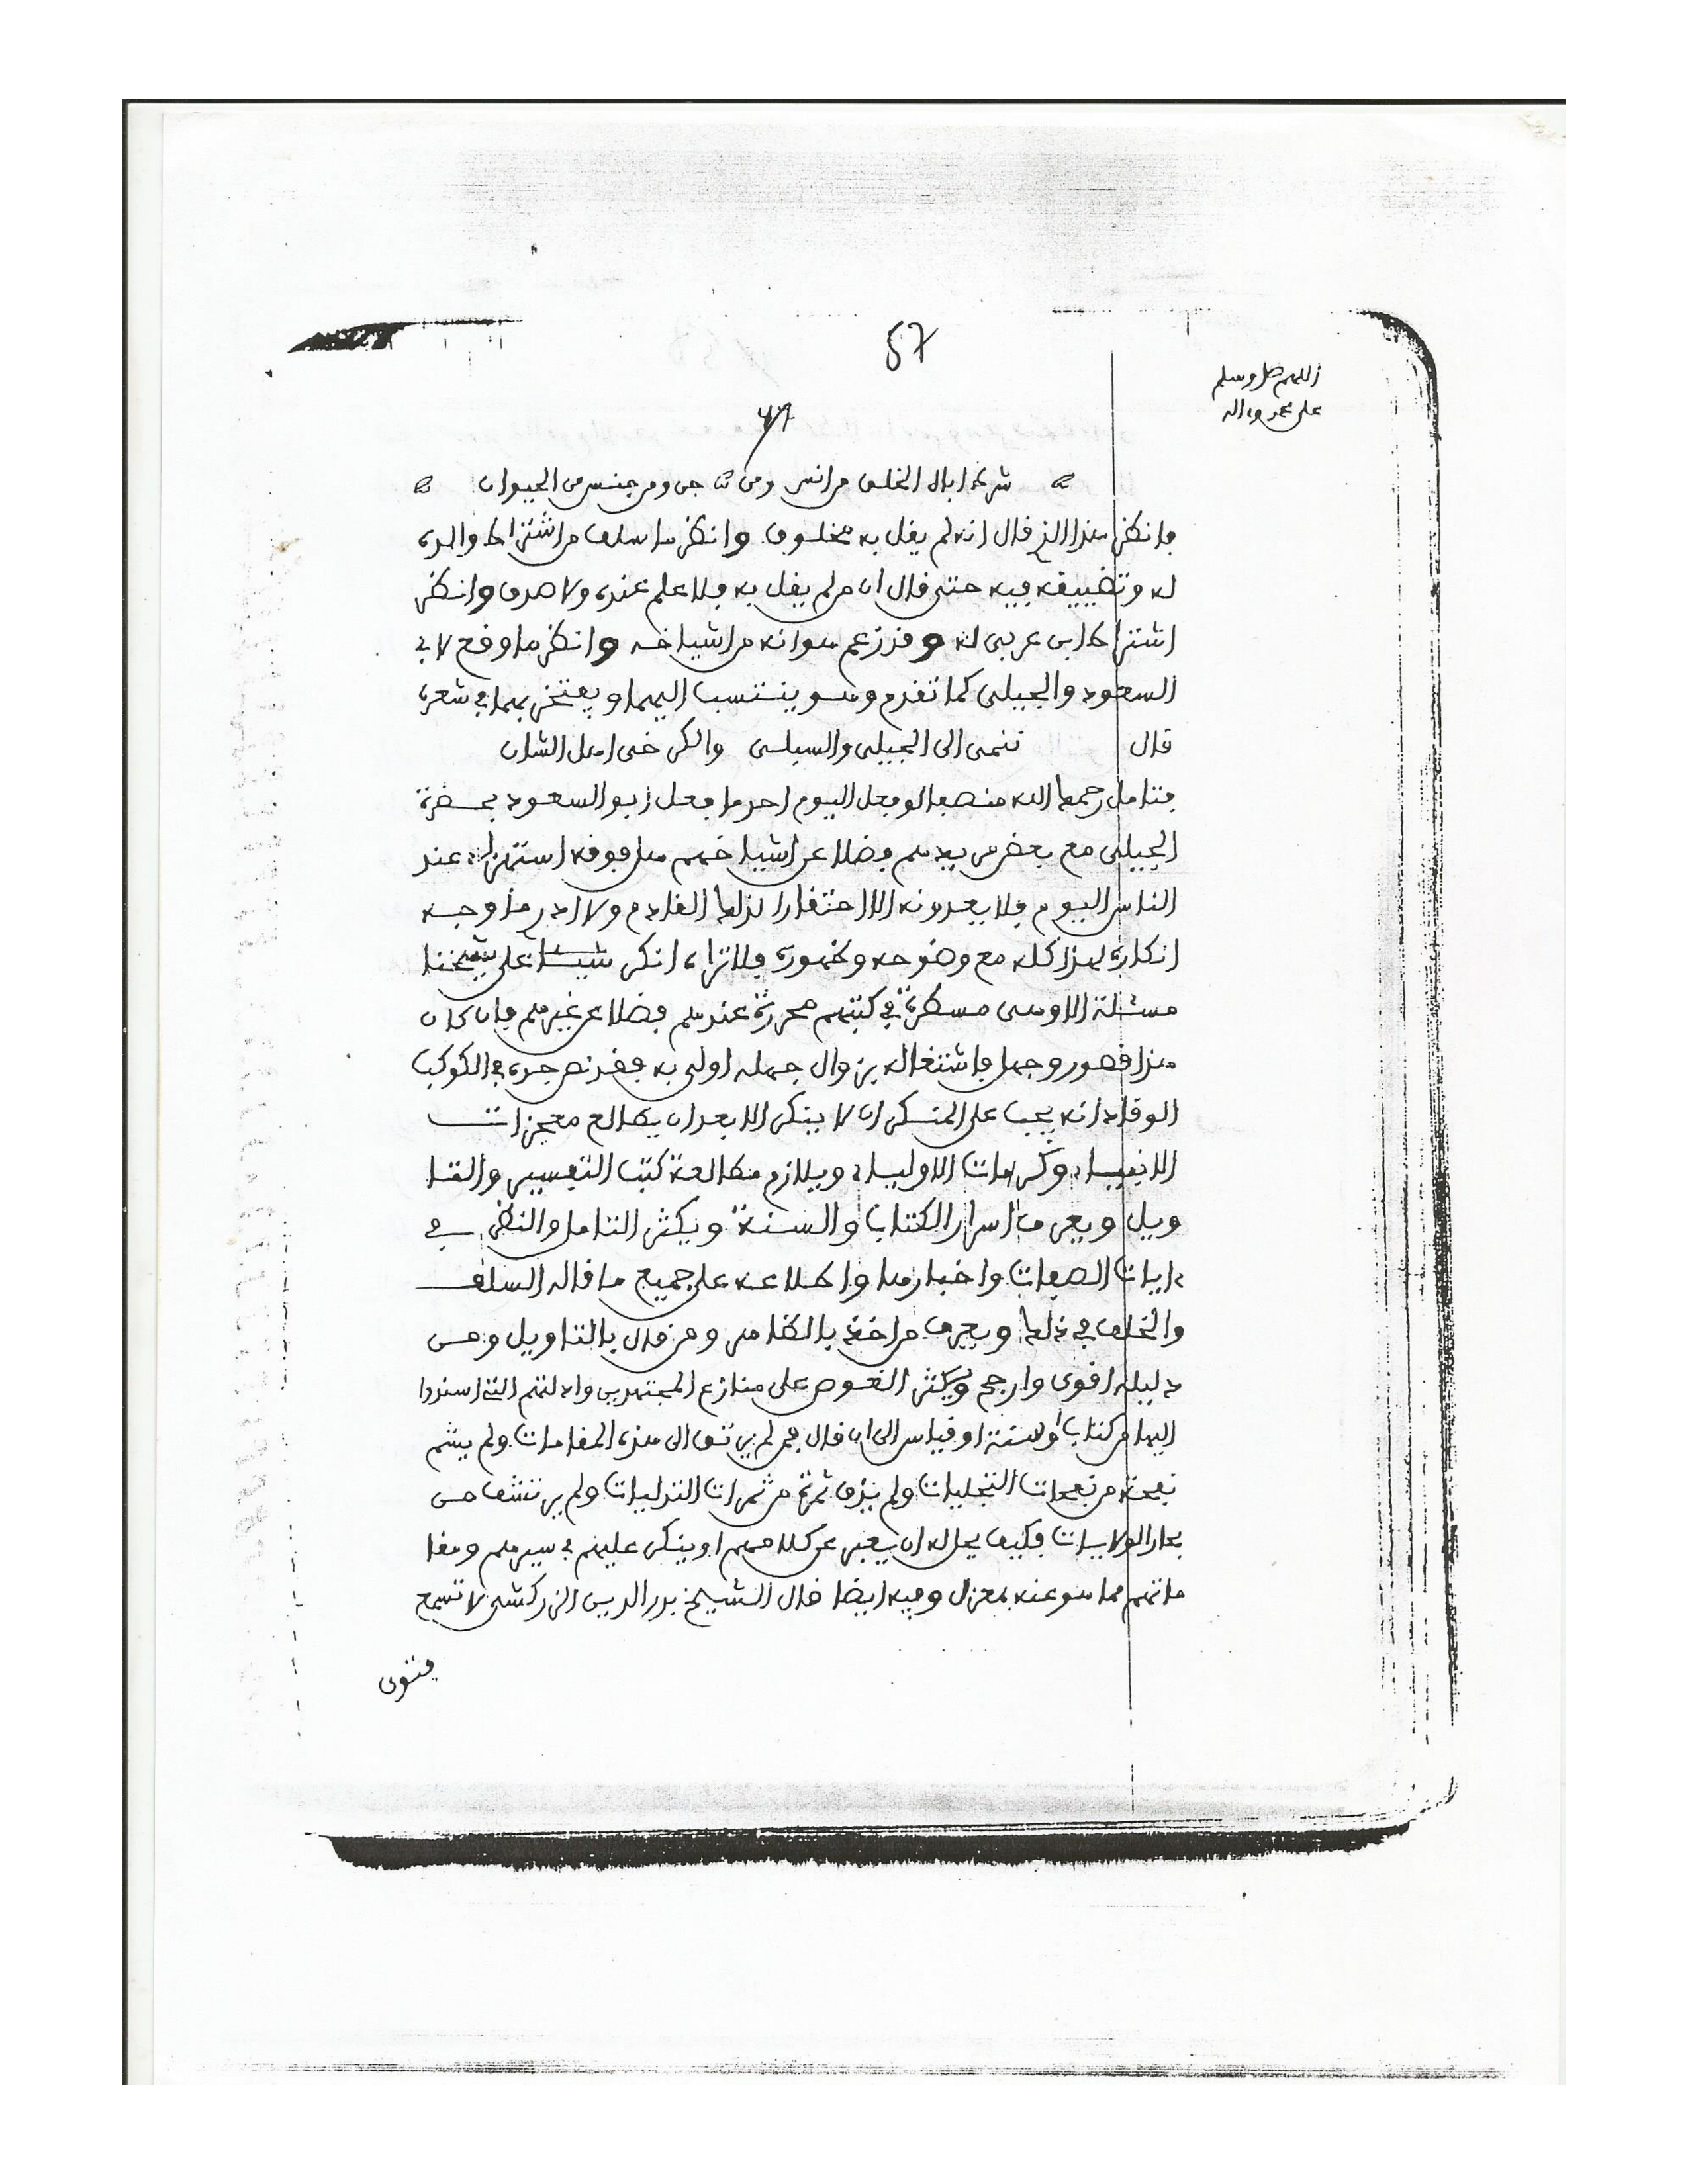 57
اللهم صل وسلم
على محمد وءاله
شرط ابال الخلق من انس ومن جن ومن جنس من الحيوان
فانظر هذا الذي قال انه لم يقل به مخلوق وانظر ما سلف من اشتراط والده
له وتضييقه فيه حتى قال ان من لم يقل به فلا علم عنده ولا صدق وانظر
اشتراط ابن عربي له وقد زعم هو انه من اشياخه وانظر ما وقع لابي
السعود والجيلي كما تقدم وهو ينتسب اليهما ويفتخر بهما في شعره
قال ننمى الى الجيلي والسبلسى والكرخى اهل الشان
فتامل رحمك الله منصفا لو فعل اليوم احد ما فعل ابو السعود بحضرة
الجيلي مع بعض من بيدهم فضلا عن اشياخهم هل فوقه استهزاء عند
الناس اليوم فلا يعدونه الا احتقارا لذلك القادم ولا ادر ما وجه
انكاره لهذا كله مع وضوحه وظهوره فلا تراه انكر شيئا على شيخنا
مسئلة الا وهى مسطرة في كتبهم محررة عندهم فضلا عن غيرهم فان كان
هذا قصور وجهل فاشتغاله بزوال جهله اولى به فقد نص جده في الكوكب
الوقاد انه يجب على المنكر ان لا ينكر الا بعد ان يطالع معجزات
الانبياء وكرامات الاولياء ويلازم مطالعة كتب التفسير والتا
ويل ويعرف اسرار الكتاب والسنة ويكثر التامل والنظر في
ءايات الصفات واخبارها واطلاعه على جميع ما قاله السلف
والخلف في ذلك ويعرف من اخذ بالظاهر ومن قال بالتاويل ومن
دليله اقوى وارجح ويكثر الغوص على منازع المجتهدين وادلتهم التي اسندوا
اليها من كتاب او سنة او قياس الى ان قال فمن لم يرتق الى هذه المقامات ولم يشم
نفحة من نفحات التجليات ولم يذق ثمرة من ثمرات التدليات ولم يرتشف من
بحار الولايات فكيف يحل له ان يعبر عن كلامهم او ينكر عليهم في سيرهم ومقا
ماتهم مما هو عنه بمعزل وفيه ايضا قال الشيخ بدر الدين الزركشي لا تسمع
فتوى